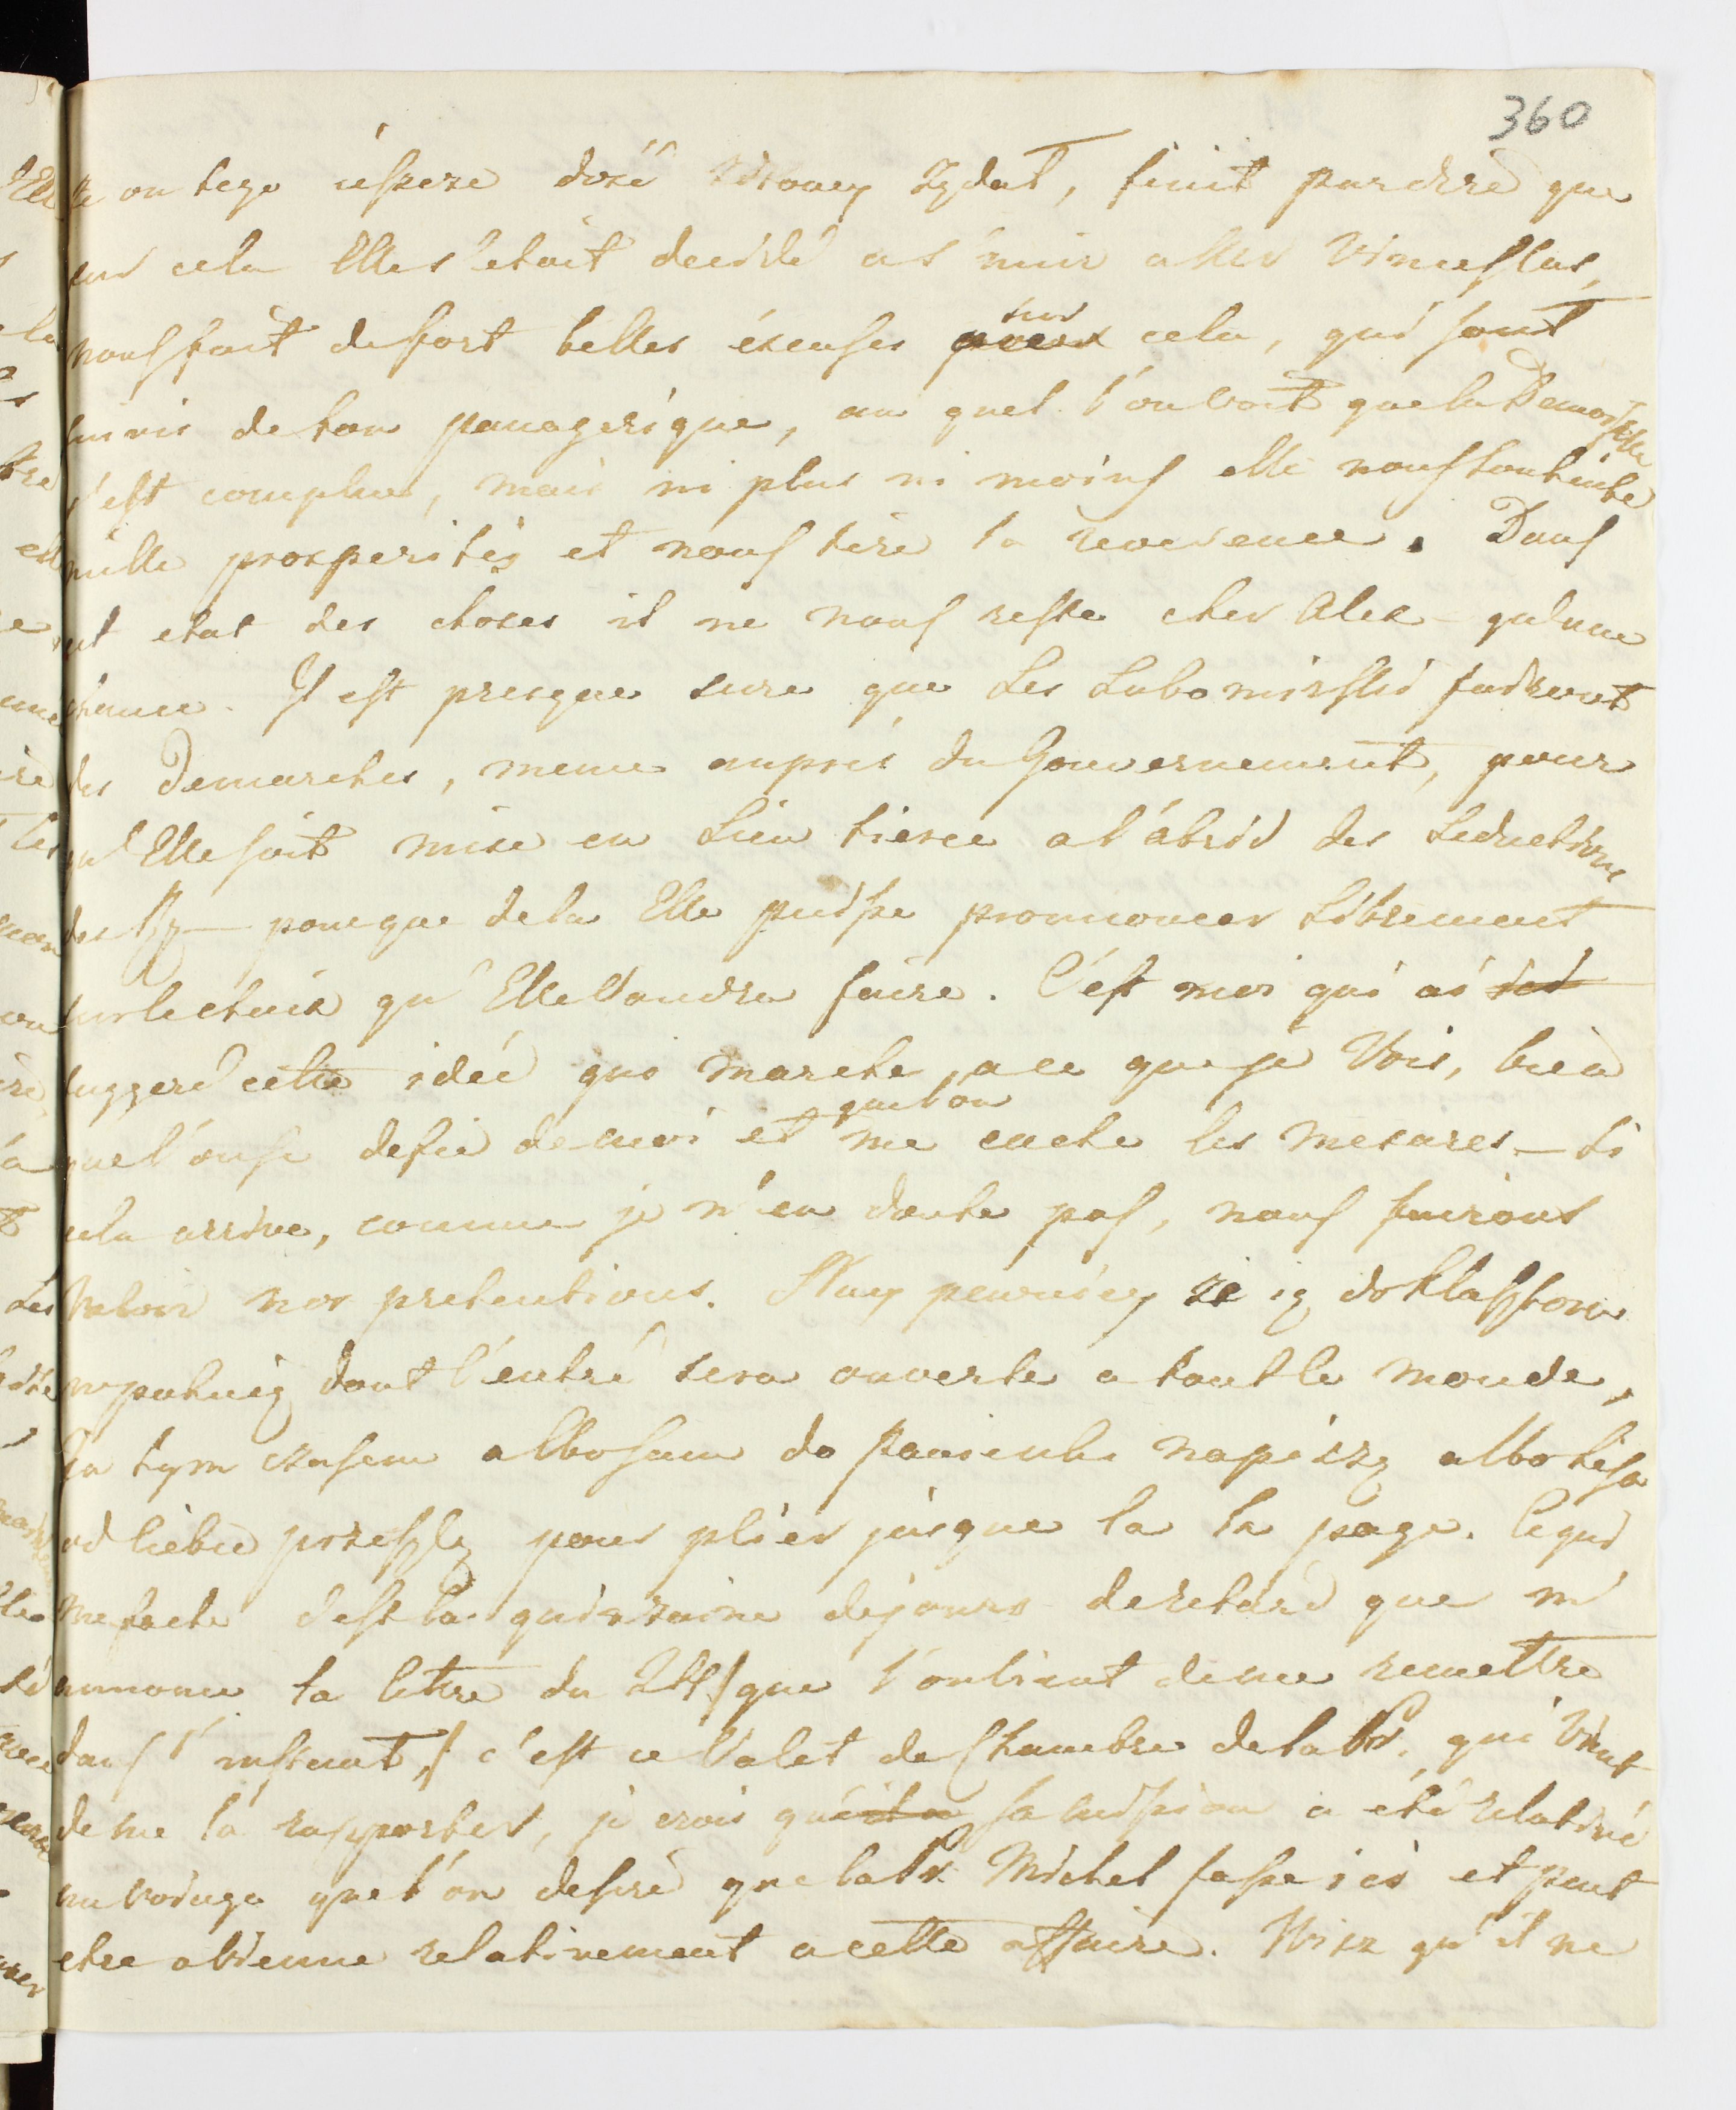 360
ze on tego jeszcze dosić strony Izdat, finit par dire que
sur cela Elle s'etoit decidé a s'unir a Mer Vinceslas,
nous fait de fort belles éxcuses sur cela, qui sont
suivis de ton panagerique, au quel l'on voit que la Demoiselle
s'est complue, mais ni plus ni moins elle nous souhaite
mille prosperités et nous tire la reverence. Dans
cet etat des choses il ne nous reste cher Alex- qu'une
chance. Il est presque sure que Les Lubomirski fairont
des Demarches, meme auprés du Gouvernement, pour
qu'Elle soit mise en Lieu tierce a l'ábrid des seductions
des Rz— pour que de la Elle puisse pronnoncer Librement
sur le choix qu'Elle Voudra faire. C'est moi qui ai
suggeré cette idée qui marche, a ce que je Vois, bien
que l'on se defie de moi et que l'on me cache les mesures — si
cela arrive, comme je n'en doute pas, nous fairons
Valoir nos pretentions. Nay pewniey ze ią do klasztoru
wpakuią dont l'entré sera ouverte a tout le monde,
Ja tym czasem albo sam do panienki napiszę albo lisa
od Ciebie przeszlę pour plier jusque la la page. Ce qui
me fache c'est la quinzaine de jours de retard que m'
annonce la lettre du 24 /que l'on vient de me remettre
dans l'instant,/ c'est ce Valet de Chambre de la Pr. qui Vient
de me la rapporter, je crois que sa mission a été relative
au voiage que l'on desire que la Pr. Michel fasse ici et peut
etre a Vienne relativement a cette affaire. Visz qu'il ne